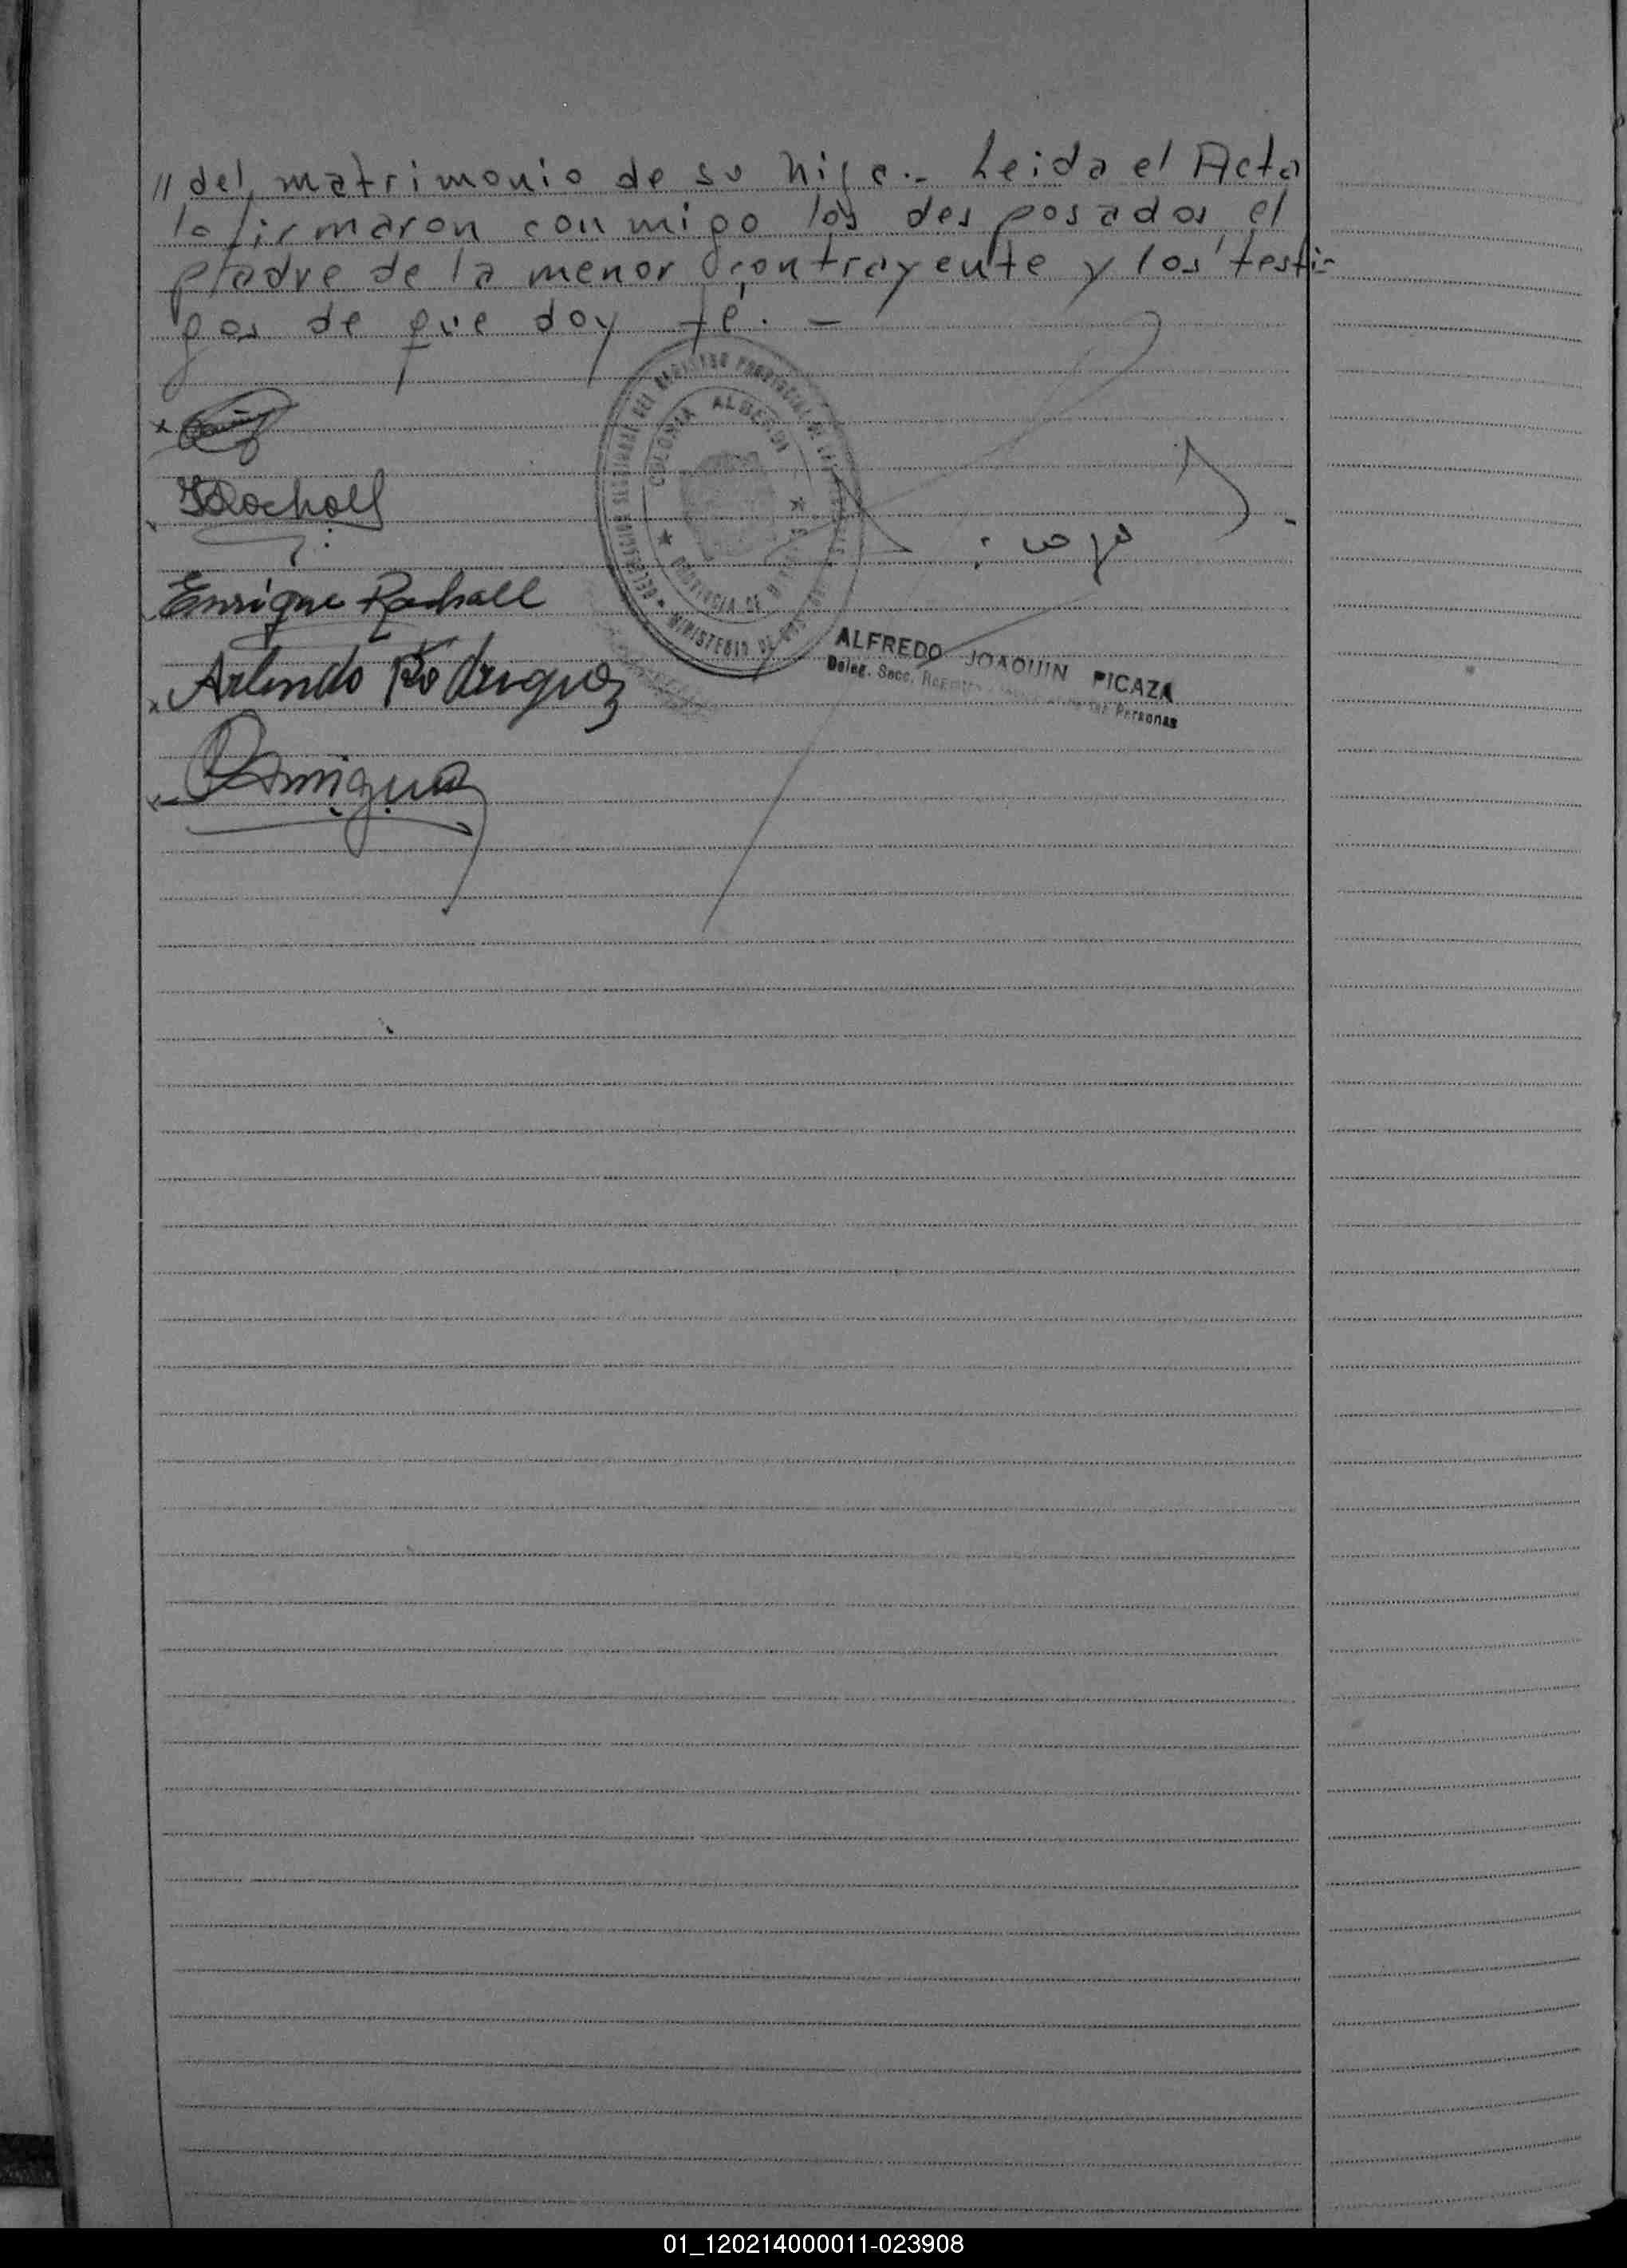 // del matrimonio de su hija.- Leida el Acta
la firmaron conmigo los desposados, el
padre de la menor contrayente y los testi-
gos de que doy fé. -
COLONIA ALBERDI
PROVINCIA DE
MINISTERIO DE
Rochall
Enrique Rochall
Arlindo Rodriguez
ALFREDO JOAQUIN PICAZA
Deleg. Secc. Personas
01_120214000011-023908